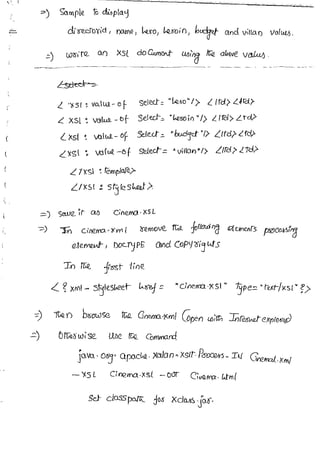 =) Sample to display
directorid, name, hero, heroin, budget and villan values.
=) write an XSL document using the above values.
< select >
< xsl : value - of Select = "hero"/> </td> <td>
< XSL : value - of Select = "heroin"/> </td> <td>
< xsl : value - of Select = "budget"/> </td> <td>
< xsl : value - of Select = "villan"/> </td> <td>
</xsl : template>
</xsl : stylesheet>
=) Save it as Cinema.XSL
=) In cinema.xml remove the following elements processing
element, DOCTYPE and copyrights
In the first line
< ? xml - stylesheet href = "cinema.xsl" type = "text/xsl" ?>
=) Then browse the Cinema.xml (open with Internet explorer)
=) Otherwise Use the Command
java . org . apache . xalan . xslt . Process - IN Cinema.xml
- XSL Cinema.xsl - out Cinema.html
Set classpath for Xclass.jar.